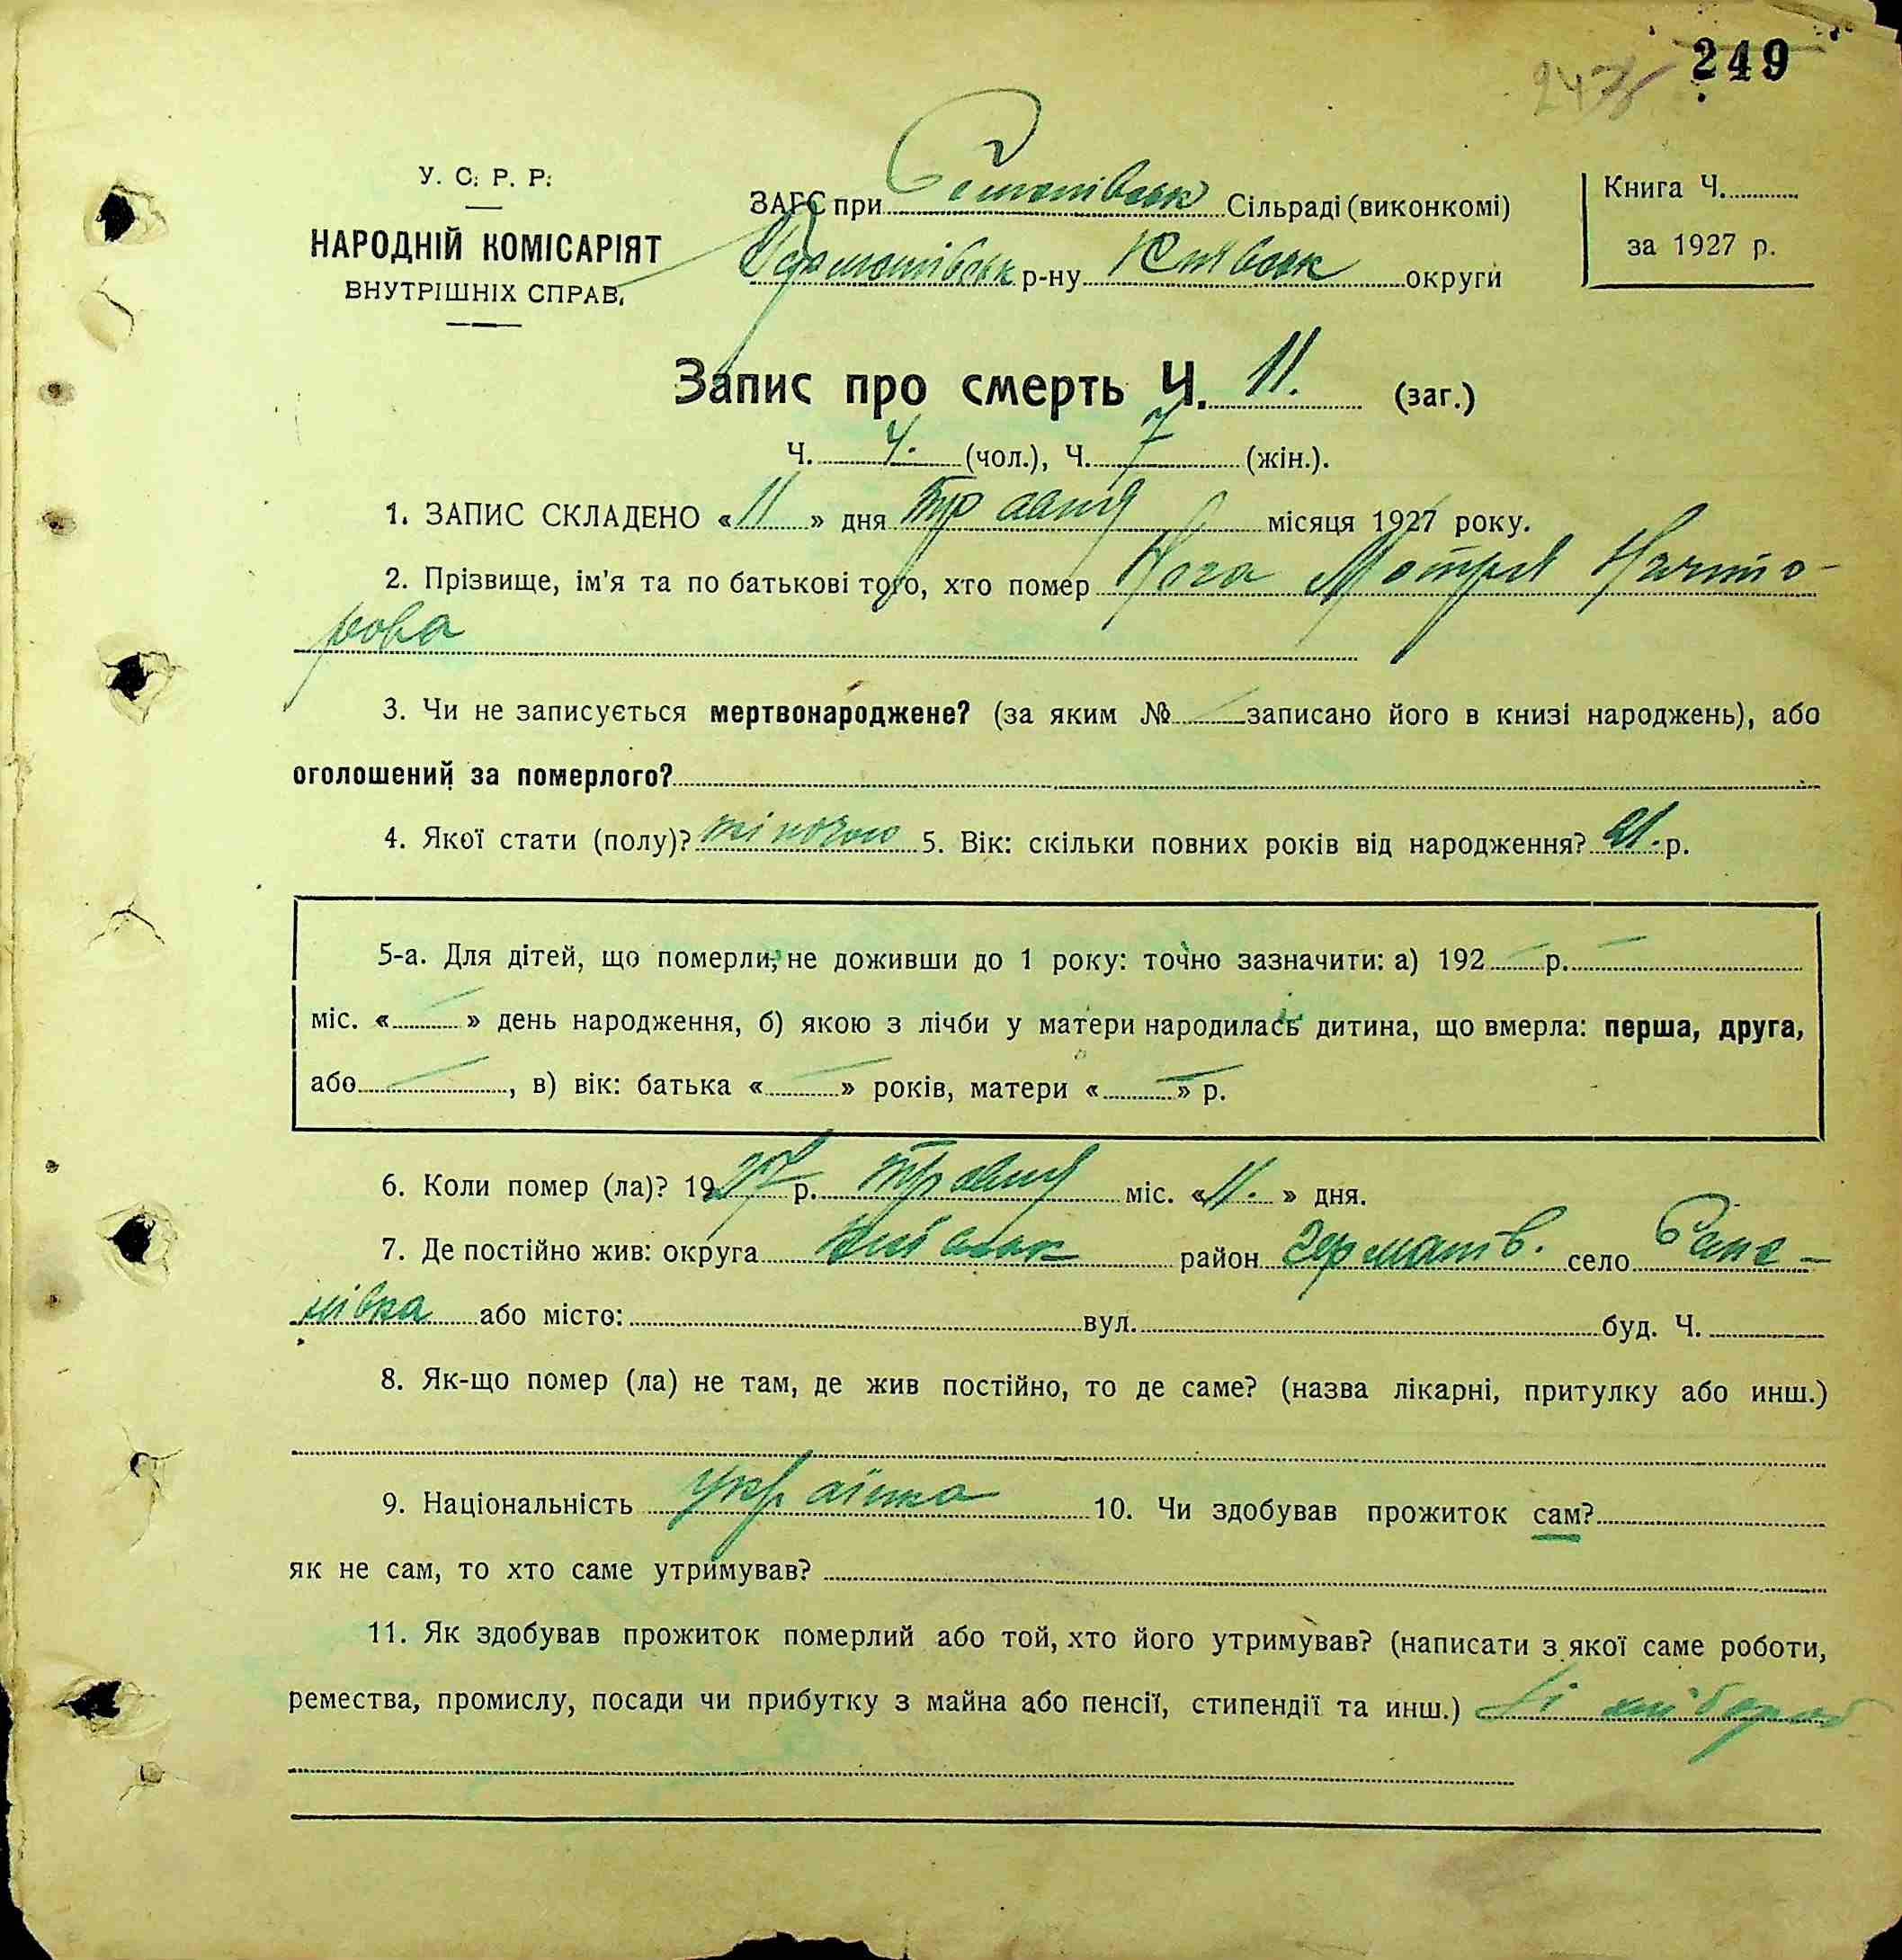 249
У. С. Р. Р.
НАРОДНІЙ КОМІСАРІЯТ
ВНУТРІШНІХ СПРАВ.
ЗАГС при Сільраді (виконкомі)
Германівськ р-ну Київськ округи
Книга Ч.
за 1927 р.
Запис про смерть Ч. 11. (заг.)
Ч. 4. (чол.), Ч. 7 (жін.).
1. ЗАПИС СКЛАДЕНО «11» дня травня місяця 1927 року.
2. Прізвище, ім'я та по батькові того, хто помер Нога Мотря
рова
3. Чи не записується мертвонароджене? (за яким № записано його в книзі народжень), або
оголошений за померлого?
4. Якої стати (полу)? жіночою 5. Вік: скільки повних років від народження? р.
5-а. Для дітей, що померли, не доживши до 1 року: точно зазначити: а) 192 р.
міс. « » день народження, б) якою з лічби у матери народилась дитина, що вмерла: перша, друга,
або , в) вік: батька « » років, матери « » р.
6. Коли помер (ла)? 1927 р. травня міс. «11.» дня.
7. Де постійно жив: округа Київськ район Германів. село
нівка або місто: вул. буд. Ч.
8. Як-що помер (ла) не там, де жив постійно, то де саме? (назва лікарні, притулку або инш.)
9. Національність українка 10. Чи здобував прожиток сам?
як не сам, то хто саме утримував?
11. Як здобував прожиток померлий або той, хто його утримував? (написати з якої саме роботи,
ремества, промислу, посади чи прибутку з майна або пенсії, стипендії та инш.) хлібороб